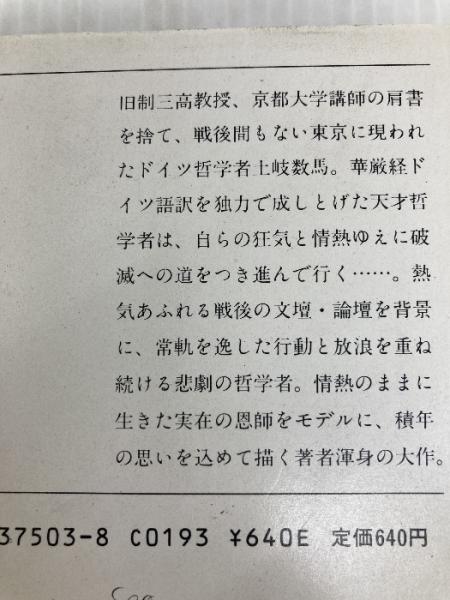 旧制三高教授、京都大学講師の肩書
を捨て、戦後間もない東京に現われ
たドイツ哲学者土岐数馬。華厳経ド
イツ語訳を独力で成しとげた天才哲
学者は、自らの狂気と情熱ゆえに破
滅への道をつき進んで行く……。熱
気あふれる戦後の文壇・論壇を背景
に、常軌を逸した行動と放浪を重ね
続ける悲劇の哲学者。情熱のままに
生きた実在の恩師をモデルに、積年
の思いを込めて描く著者渾身の大作。
37503-8 C0193 ¥640E 定価640円